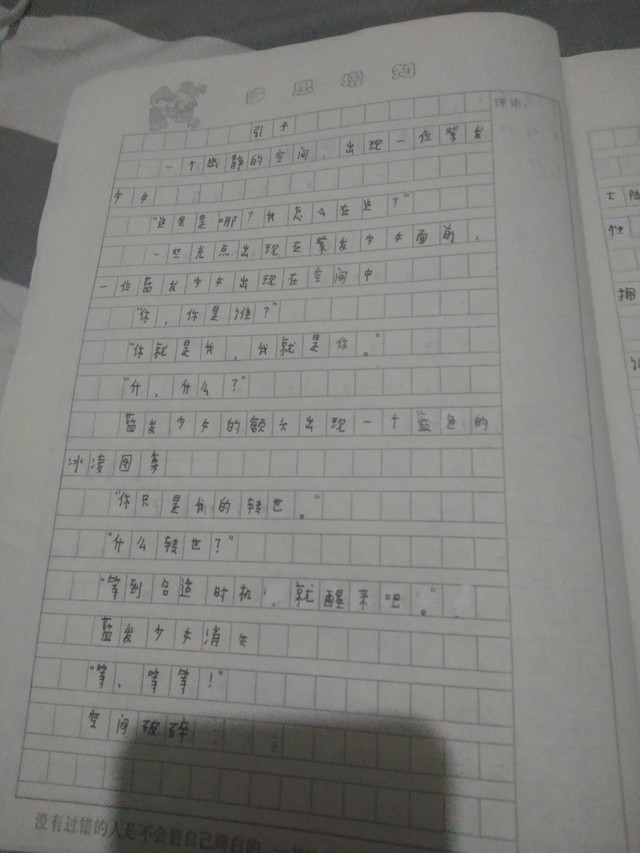 多思擂台
评语：
引子
一个幽静的空间，出现一位紫发
少女
“这里是哪？我怎么在这？”
一些光点出现在紫发少女面前，
一位蓝发少女出现在空间中
“你，你是谁？”
“你就是我，我就是你。”
“什，什么？”
蓝发少女的额头出现一个蓝色的
冰凌图案
“你只是我的转世。”
“什么转世？”
“等到合适时机，就醒来吧。”
蓝发少女消失
“等，等等！”
空间破碎
没有过错的人是不会替自己辩白的。
大陆
拥